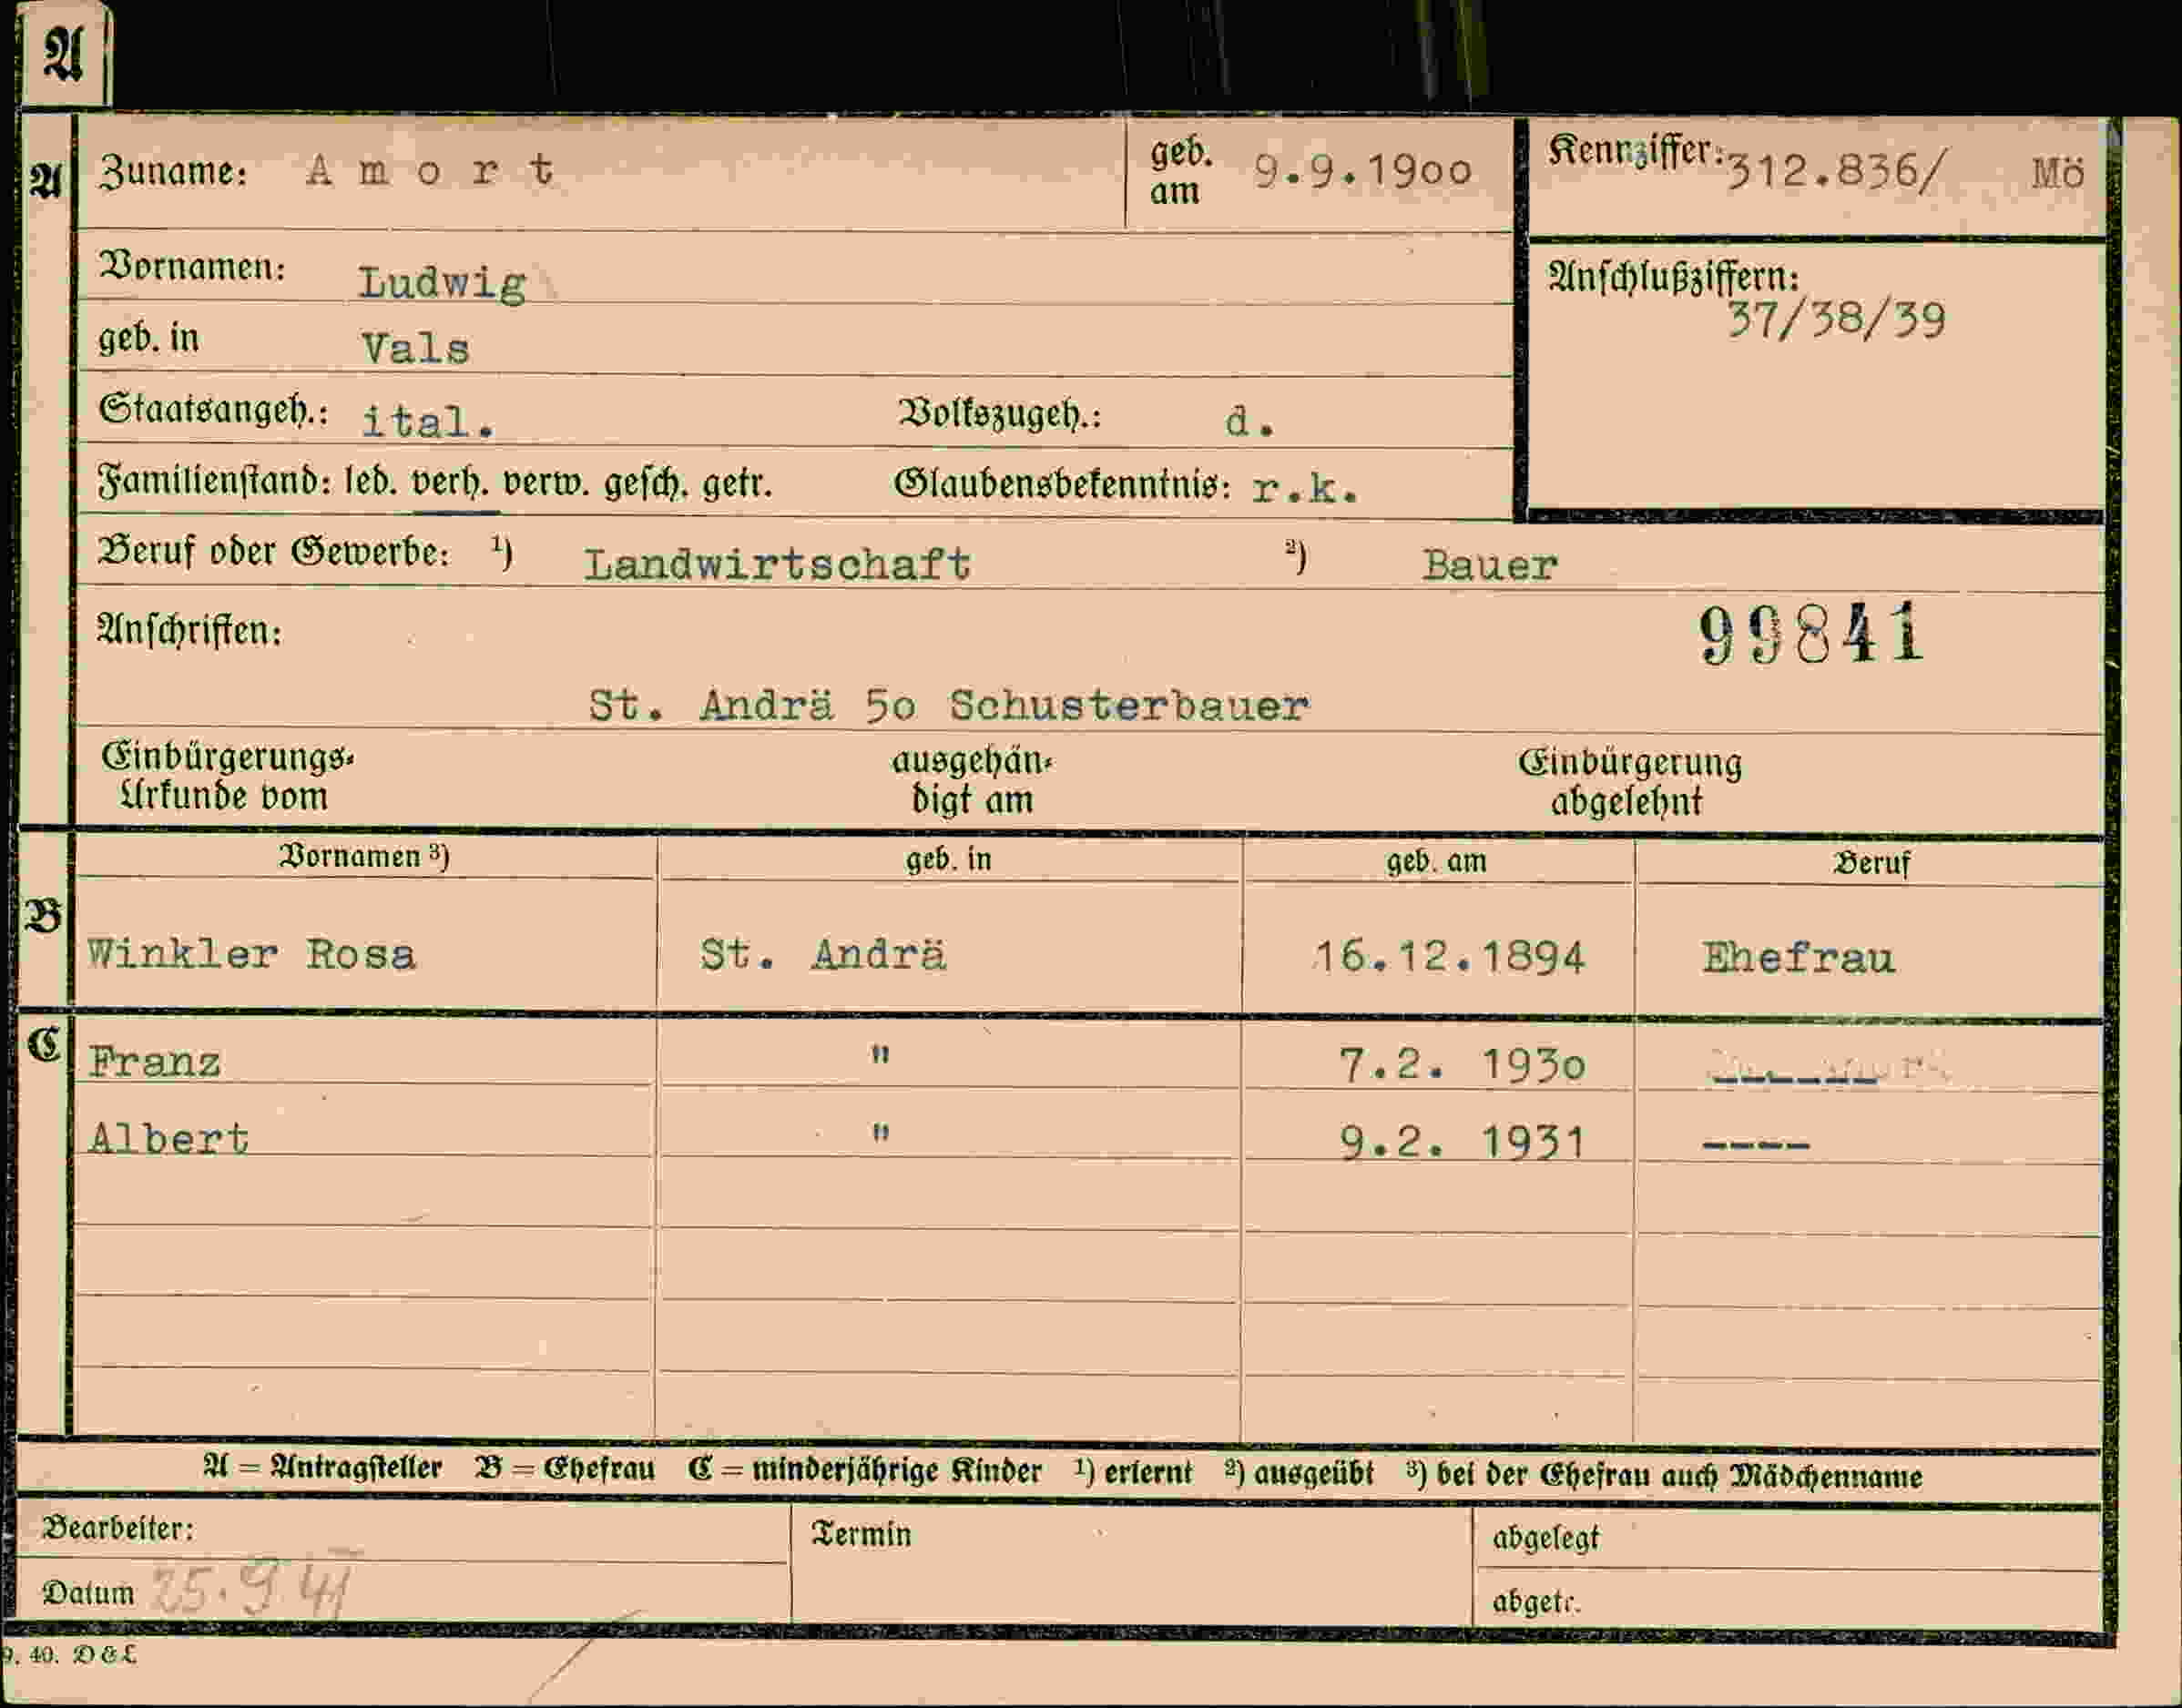 A
A Zuname: Amort geb. am 9.9.1900 Kennziffer: 312.836/ Mö
Vornamen: Ludwig Anschlußziffern:
37/38/39
geb. in Vals
Staatsangeh.: ital. Volkszugeh.: d.
Familienstand: led. verh. verw. gesch. getr. Glaubensbekenntnis: r.k.
Beruf oder Gewerbe: 1) Landwirtschaft 2) Bauer
Anschriften: 99841
St. Andrä 50 Schusterbauer
Einbürgerungs- ausgehän- Einbürgerung
Urkunde vom digt am abgelehnt
Vornamen 3) geb. in geb. am Beruf
B
Winkler Rosa St. Andrä 16.12.1894 Ehefrau
C
Franz " 7.2. 1930 ------
Albert " 9.2. 1931 ----
A = Antragsteller B = Ehefrau C = minderjährige Kinder 1) erlernt 2) ausgeübt 3) bei der Ehefrau auch Mädchenname
Bearbeiter: Termin abgelegt
Datum 25.9.41 abgetr.
9. 40. D & L